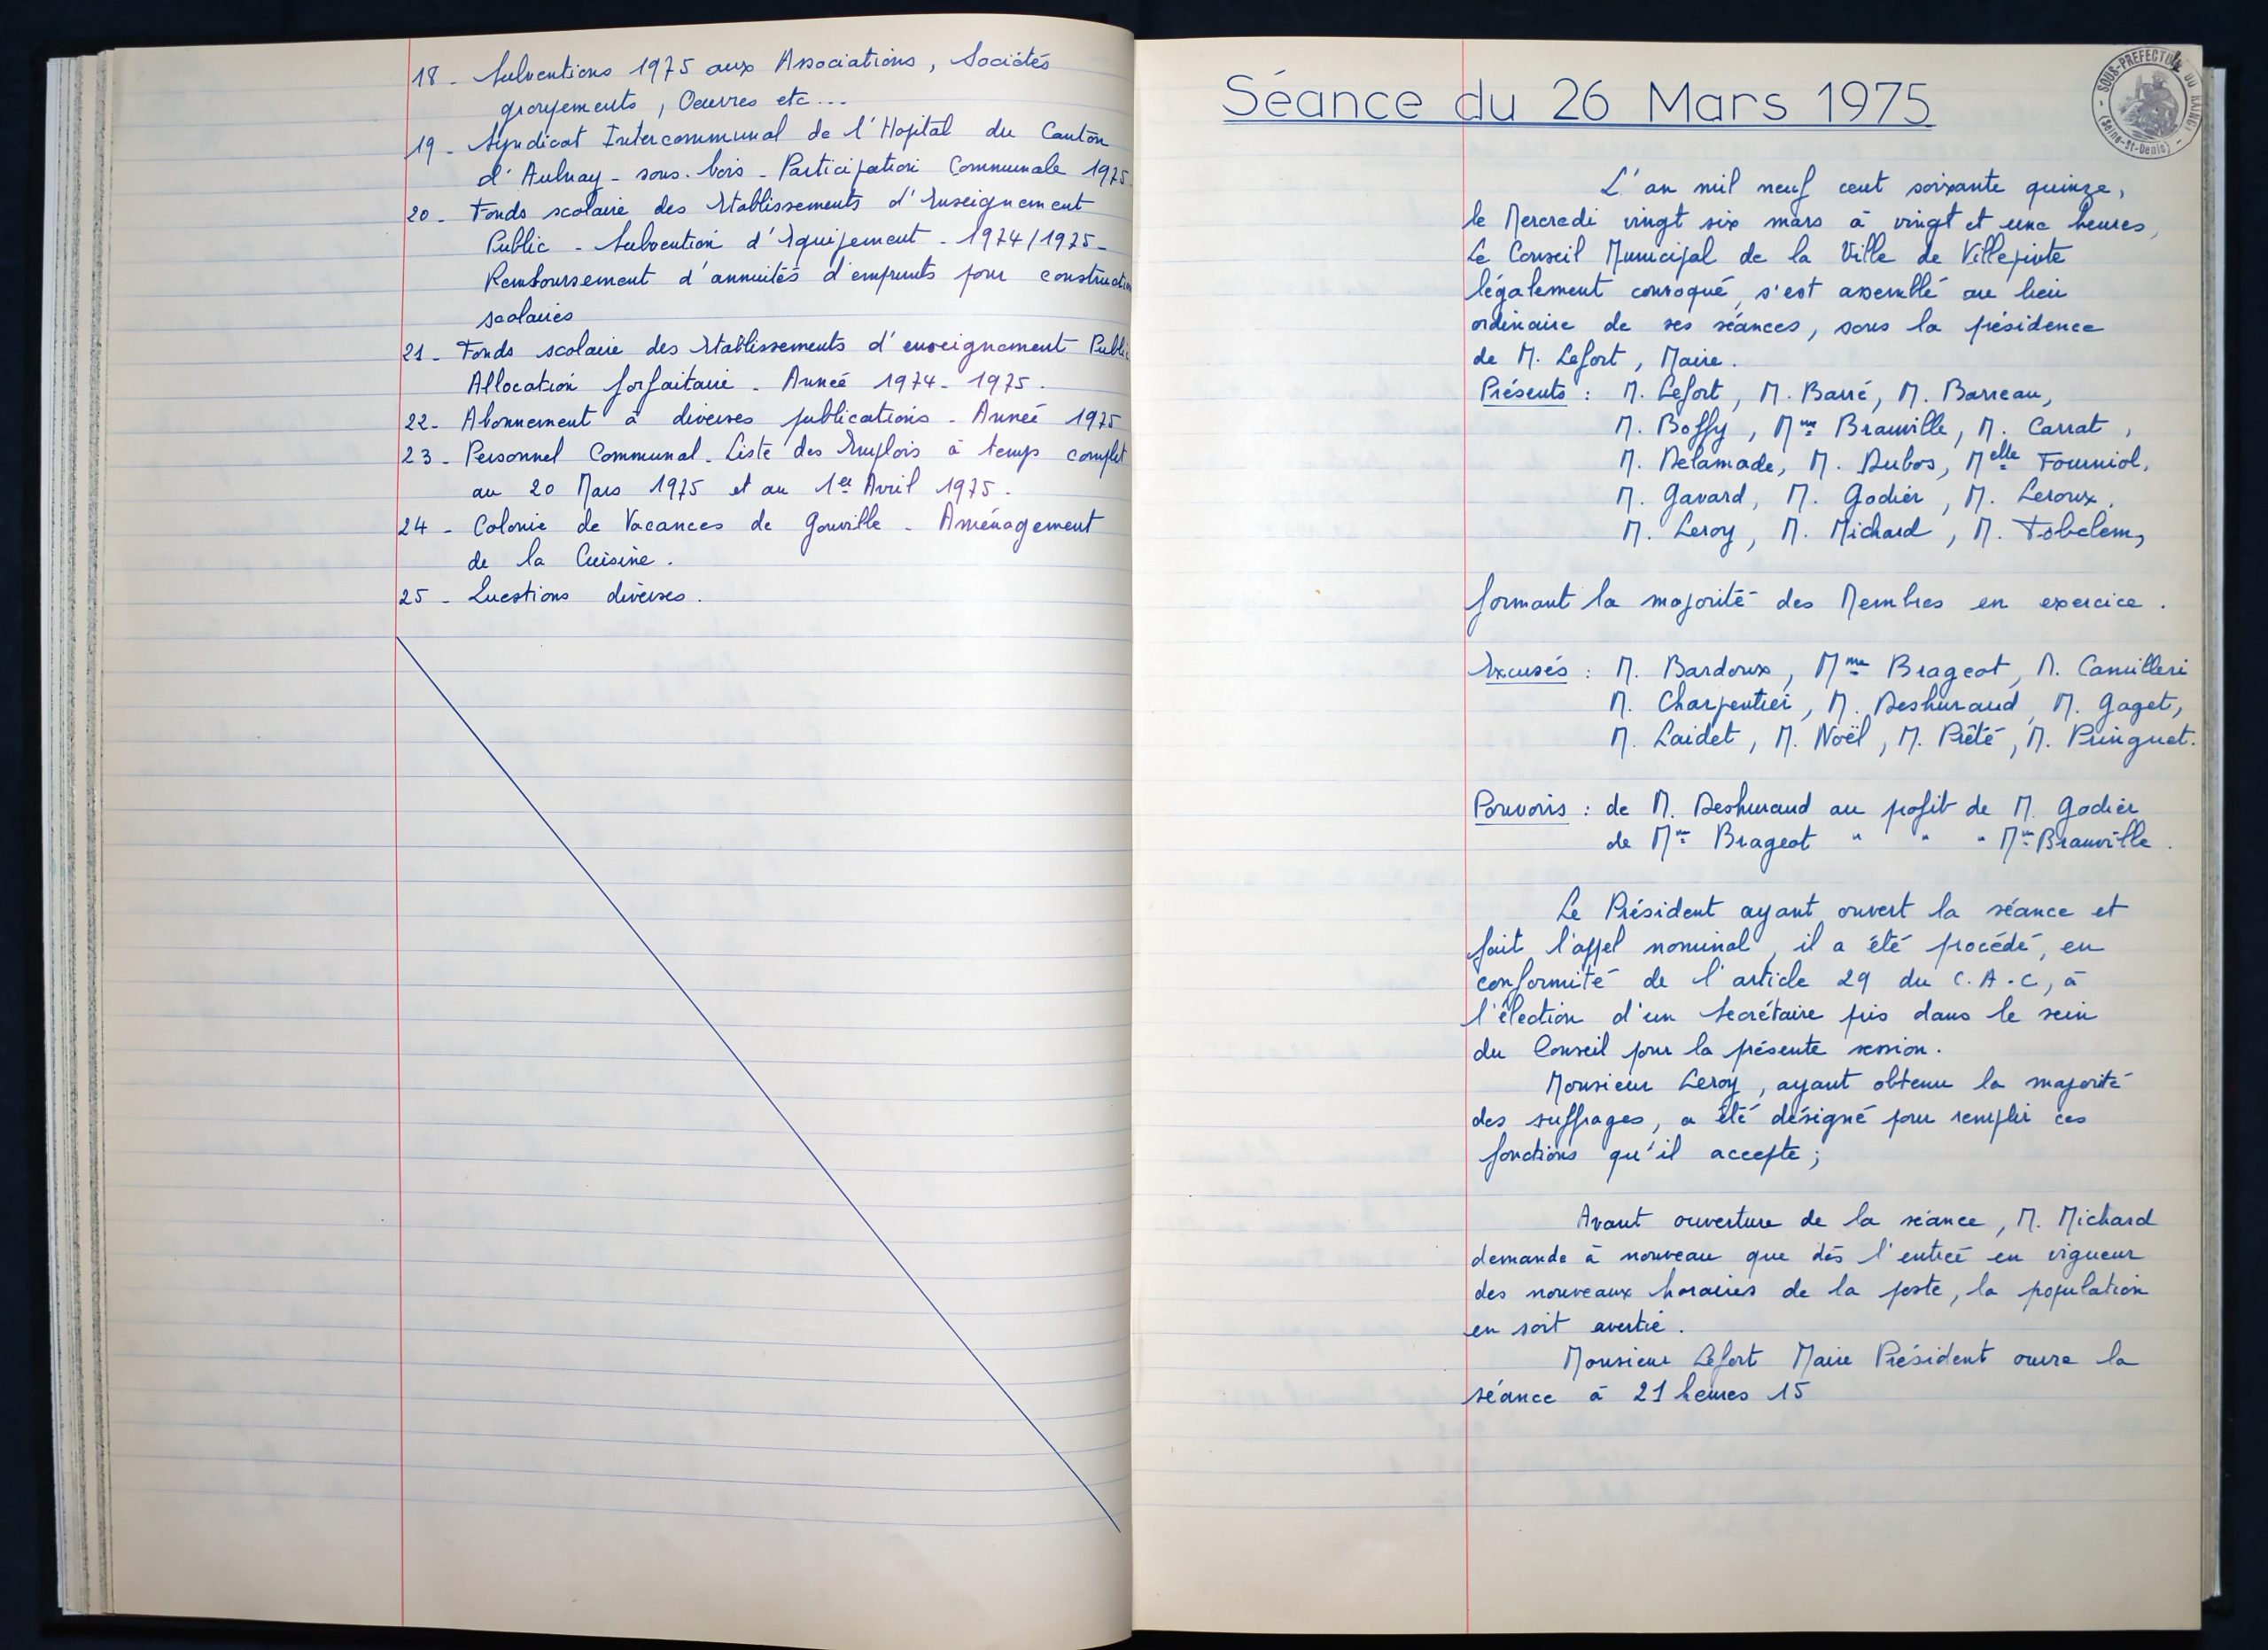 18 - Subventions 1975 aux Associations, Sociétés
groupements, Oeuvres etc...
19 - Syndicat Intercommunal de l'Hopital du Canton
d'Aulnay - sous - bois - Participation Communale 1975
20 - Fonds scolaire des Etablissements d'Enseignement
Public - Subvention d'Equipement - 1974/1975 -
Remboursement d'annuités d'emprunts pour construction
scolaires
21 - Fonds scolaire des Etablissements d'enseignement Public
Allocation forfaitaire - Année 1974 - 1975.
22 - Abonnement à diverses publications - Année 1975
23 - Personnel Communal - Liste des Emplois à temps complet
au 20 Mars 1975 et au 1er Avril 1975.
24 - Colonie de Vacances de Gouville - Aménagement
de la Cuisine.
25 - Questions diverses.
SOUS-PREFECTURE DU RAINCY
(Seine-St-Denis)
Séance du 26 Mars 1975
L'an mil neuf cent soixante quinze,
le Mercredi vingt six mars à vingt et une heures,
Le Conseil Municipal de la Ville de Villepinte
légalement convoqué, s'est assemblé au lieu
ordinaire de ses séances, sous la présidence
de M. Lefort, Maire.
Présents : M. Lefort, M. Barré, M. Barreau,
M. Boffy, Mme Brauville, M. Carrat,
M. Delamade, M. Dubos, Melle Fourniol,
M. Gavard, M. Godier, M. Leroux,
M. Leroy, M. Michard, M. Tobelem,
formant la majorité des Membres en exercice.
Excusés : M. Bardoux, Mme Brageot, M. Camilleri
M. Charpentier, M. Deshuraud, M. Gaget,
M. Laidet, M. Noël, M. Piété, M. Pringuet.
Pouvoirs : de M. Deshuraud au profit de M. Godier
de Mme Brageot " " " Mme Brauville.
Le Président ayant ouvert la séance et
fait l'appel nominal, il a été procédé, en
conformité de l'article 29 du C.A.C, à
l'élection d'un Secrétaire pris dans le sein
du Conseil pour la présente session.
Monsieur Leroy, ayant obtenu la majorité
des suffrages, a été désigné pour remplir ces
fonctions qu'il accepte;
Avant ouverture de la séance, M. Michard
demande à nouveau que dès l'entrée en vigueur
des nouveaux horaires de la poste, la population
en soit avertie.
Monsieur Lefort Maire Président ouvre la
séance à 21 heures 15